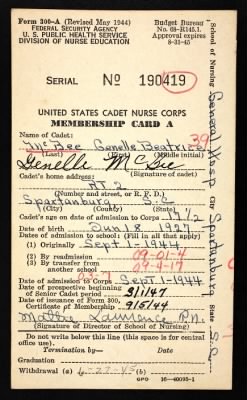 Form 300-A (Revised May 1944)
FEDERAL SECURITY AGENCY
U. S. PUBLIC HEALTH SERVICE
DIVISION OF NURSE EDUCATION
Budget Bureau
No. 68-R145.1.
Approval expires
8-31-45
SERIAL No 190419
UNITED STATES CADET NURSE CORPS
MEMBERSHIP CARD A
Name of Cadet: 39
McBee Genelle Beatrice
(Last) (First) (Middle initial)
Genelle McBee
(Signature of cadet)
Cadet's home address:
RT 2
(Number and street, or R. F. D.)
Spartanburg S.C.
(City) (County) (State)
Cadet's age on date of admission to Corps 17 1/2
Date of birth Jun 18 1927
Dates of admission to school: (Fill in all that apply)
(1) Originally Sept 1-1944
(2) By readmission 09-01-4
(3) By transfer from another school 09-4-17
03-7
Date of admission to Corps Sept 1-1944
Date of prospective beginning of Senior Cadet period 3/1/47
Date of issuance of Form 300, Certificate of Membership
Mattie Lawrence R.N.
(Signature of Director of School of Nursing)
Do not write below this line (this space is for central office use).
Termination by— Date
Graduation
Withdrawal (a) 6-27-45
GPO 16—40093-1
School of Nursing General Hosp City Spartanburg State S.C.